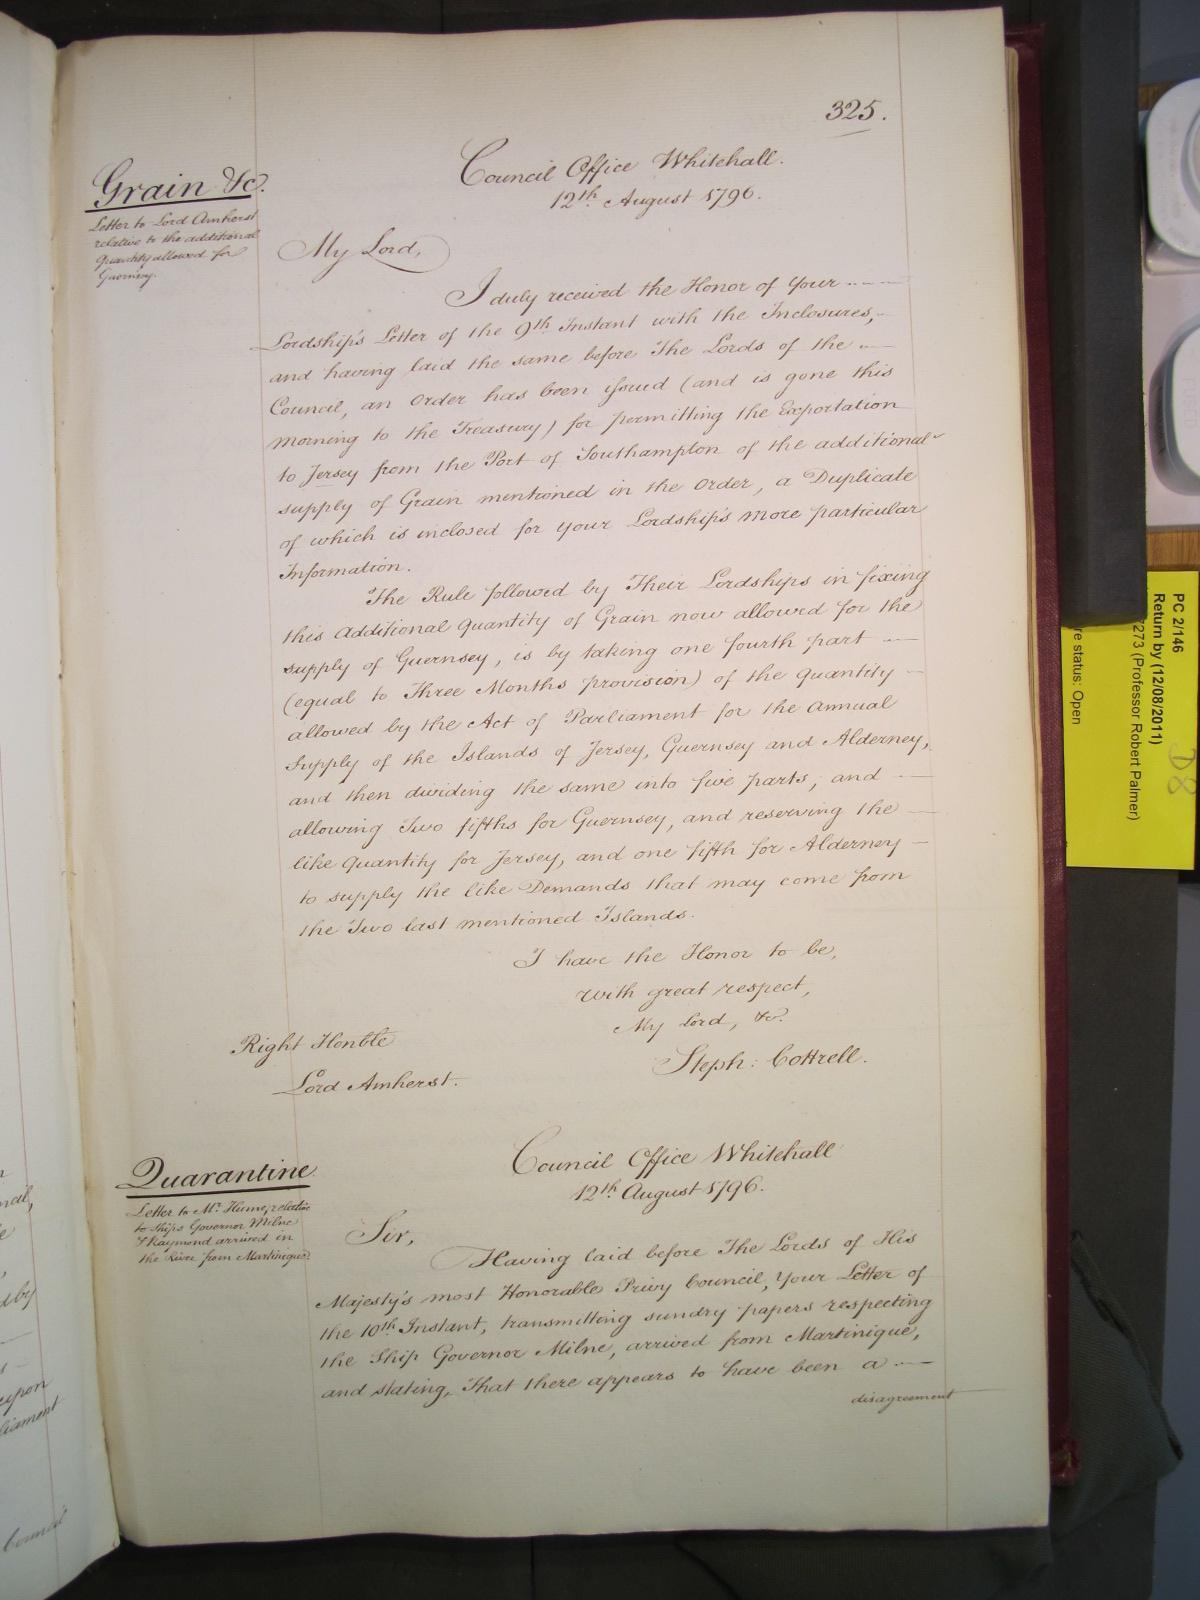 325.
Grain &c.
Letter to Lord Amherst
relative to the additional
quantity allowed for
Guernsey.
Council Office Whitehall.
12th. August 1796.
My Lord,
I duly received the Honor of Your
Lordship's Letter of the 9th Instant with the Inclosures,
and having laid the same before The Lords of the
Council, an Order has been issued (and is gone this
morning to the Treasury) for permitting the Exportation
to Jersey from the Port of Southampton of the additional
supply of Grain mentioned in the Order, a Duplicate
of which is inclosed for your Lordship's more particular
Information.
The Rule followed by Their Lordships in fixing
this Additional Quantity of Grain now allowed for the
supply of Guernsey, is by taking one fourth part
(equal to Three Months provision) of the quantity
allowed by the Act of Parliament for the Annual
Supply of the Islands of Jersey, Guernsey and Alderney,
and then dividing the same into five parts, and
allowing Two fifths for Guernsey, and reserving the
like quantity for Jersey, and one fifth for Alderney
to supply the like Demands that may come from
the Two last mentioned Islands.
I have the Honor to be,
with great respect,
My Lord, &c.
Steph: Cottrell.
Right Honble
Lord Amherst.
Quarantine.
Letter to Mr. Hume, relative
to Ships Governor Milne
& Raymond arrived in
the River from Martinique.
Council Office Whitehall
12th August 1796.
Sir,
Having laid before The Lords of His
Majesty's most Honorable Privy Council, Your Letter of
the 10th Instant, transmitting sundry papers respecting
the Ship Governor Milne, arrived from Martinique,
and stating, That there appears to have been a
disagreement
PC 2/146
Return by (12/08/2011)
7273 (Professor Robert Palmer)
re status: Open
D8
upon
liament
Council